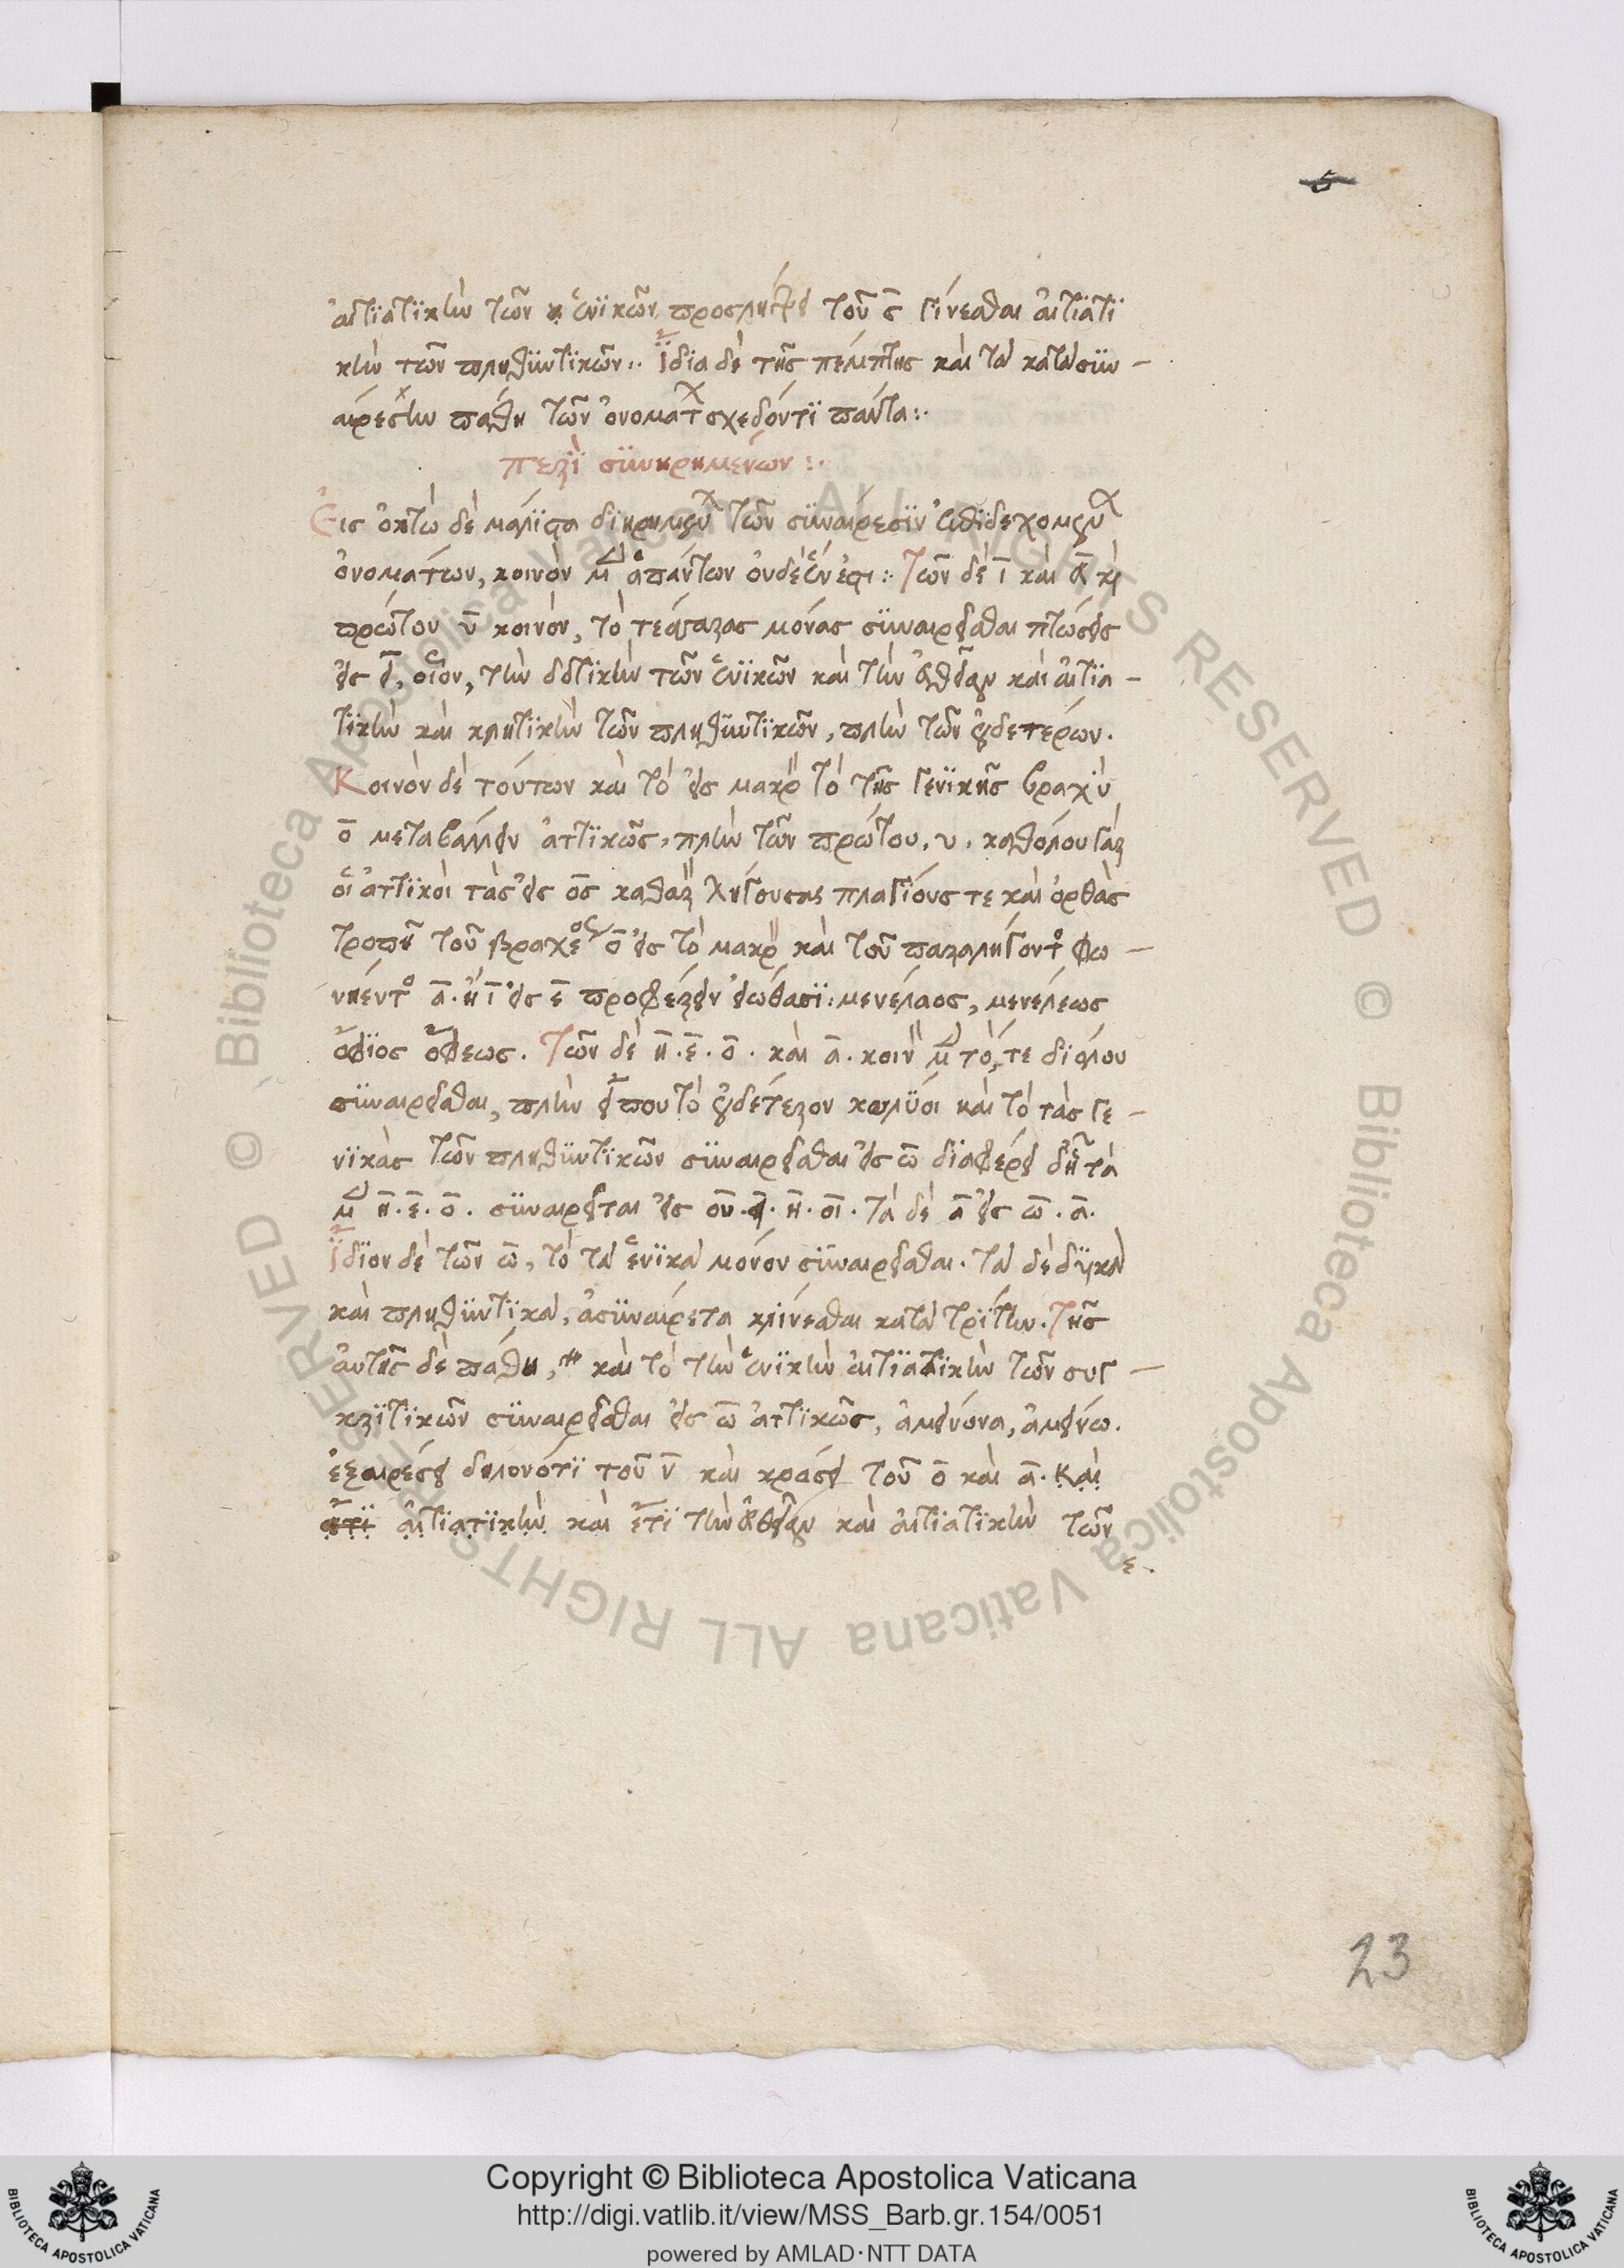 5
αἰτιατϊκὴν τῶν ἑνϊκῶν προσλήψει τοῦ ς γίνεσθαι αἰτιατϊ
κὴν τῶν πληθϋντϊκῶν :. ἴδϊα δὲ τῆς πέμπτης καὶ τὰ κατὰ σϋν –
αίρεσϊν πάθη τῶν ὀνομάτ σχεδόντϊ πάντα :.
περὶ σϋνηρημένων :.
Εἰς ὀκτὼ δὲ μάλϊστα διηρημένων τῶν σϋναίρεσϊν ἐπϊδεχομένων
ὀνομάτων, κοινὸν μὲν ἁπάντων οὐδὲ ἕν ἐστι :. Τῶν δὲ ῑ καὶ ῡ καὶ
πρώτου ῡ κοινὸν, τὸ τέσσαρας μόνας σϋναιρεῖσθαι πτώσεις
εἰς δ, οἷον, τὴν δοτϊκὴν τῶν ἑνϊκῶν καὶ τὴν εὐθεῖαν καὶ αἰτια –
τϊκὴν καὶ κλητϊκὴν τῶν πληθϋντϊκῶν, πλὴν τῶν οὐδετέρων.
Κοινὸν δὲ τούτων καὶ τὸ εἰς μακρὸν τὸ τῆς γενϊκῆς βραχὺ
ο̄ μεταβάλλειν ἀττϊκῶς, πλὴν τῶν πρώτου. υ. καθόλου γὰρ
οἱ ἀττϊκοὶ τὰς εἰς ος καθαρὸν ληγούσας πλαγίους τε καὶ ὀρθὰς
τροπῇ τοῦ βραχέος ο̄ εἰς τὸ μακρὸν καὶ τοῦ παραλήγοντος φω –
νήεντος ᾱ. ἢ ῑ εἰς ε̄ προφέρειν εἰώθασϊ : μενέλαος, μενέλεως
ὄφϊος ὄφεως. Τῶν δὲ η̄. ε̄. ο̄. καὶ ᾱ. κοινὸν μὲν τό, τε δι ὅλου
σϋναιρεῖσθαι, πλὴν εἴπου τὸ οὐδέτερον κωλύοι καὶ τὸ τὰς γε –
νϊκὰς τῶν πληθϋντϊκῶν σϋναιρεῖσθαι εἰς ω̄ διαφέρει δ' ὅτι τὰ
μὲν η̄. ε̄. ο̄. σϋναιρεῖται εἰς ου. ει. η̄. οι. τὰ δὲ ᾱ εἰς ω̄. ᾱ.
ἴδϊον δὲ τῶν ω̄, τὸ τὰ ἑνϊκὰ μόνον σϋναιρεῖσθαι. τὰ δὲ δϋϊκὰ
καὶ πληθϋντϊκὰ, ἀσϋναίρετα κλίνεσθαι κατὰ τρίτην. Τῆς
αὐτῆς δὲ πάθη, καὶ τὸ τὴν ἑνϊκὴν αἰτϊατϊκὴν τῶν συγ –
κρϊτϊκῶν σϋναιρεῖσθαι εἰς ω̄ ἀττϊκῶς, ἀμείνονα, ἀμείνω.
ἐξαιρέσει δηλονότϊ τοῦ ν̄ καὶ κράσει τοῦ ο̄ καὶ ᾱ. καὶ
ἔτϊ αἰτϊατϊκὴν καὶ ἔτϊ τὴν εὐθεῖαν καὶ αἰτϊατϊκὴν τῶν
ε.
23
Copyright © Biblioteca Apostolica Vaticana
http://digi.vatlib.it/view/MSS_Barb.gr.154/0051
powered by AMLAD·NTT DATA
BIBLIOTECA APOSTOLICA VATICANA
BIBLIOTECA APOSTOLICA VATICANA
© Biblioteca Apostolica Vaticana ALL RIGHTS RESERVED © Biblioteca Apostolica Vaticana ALL RIGHTS RESERVED